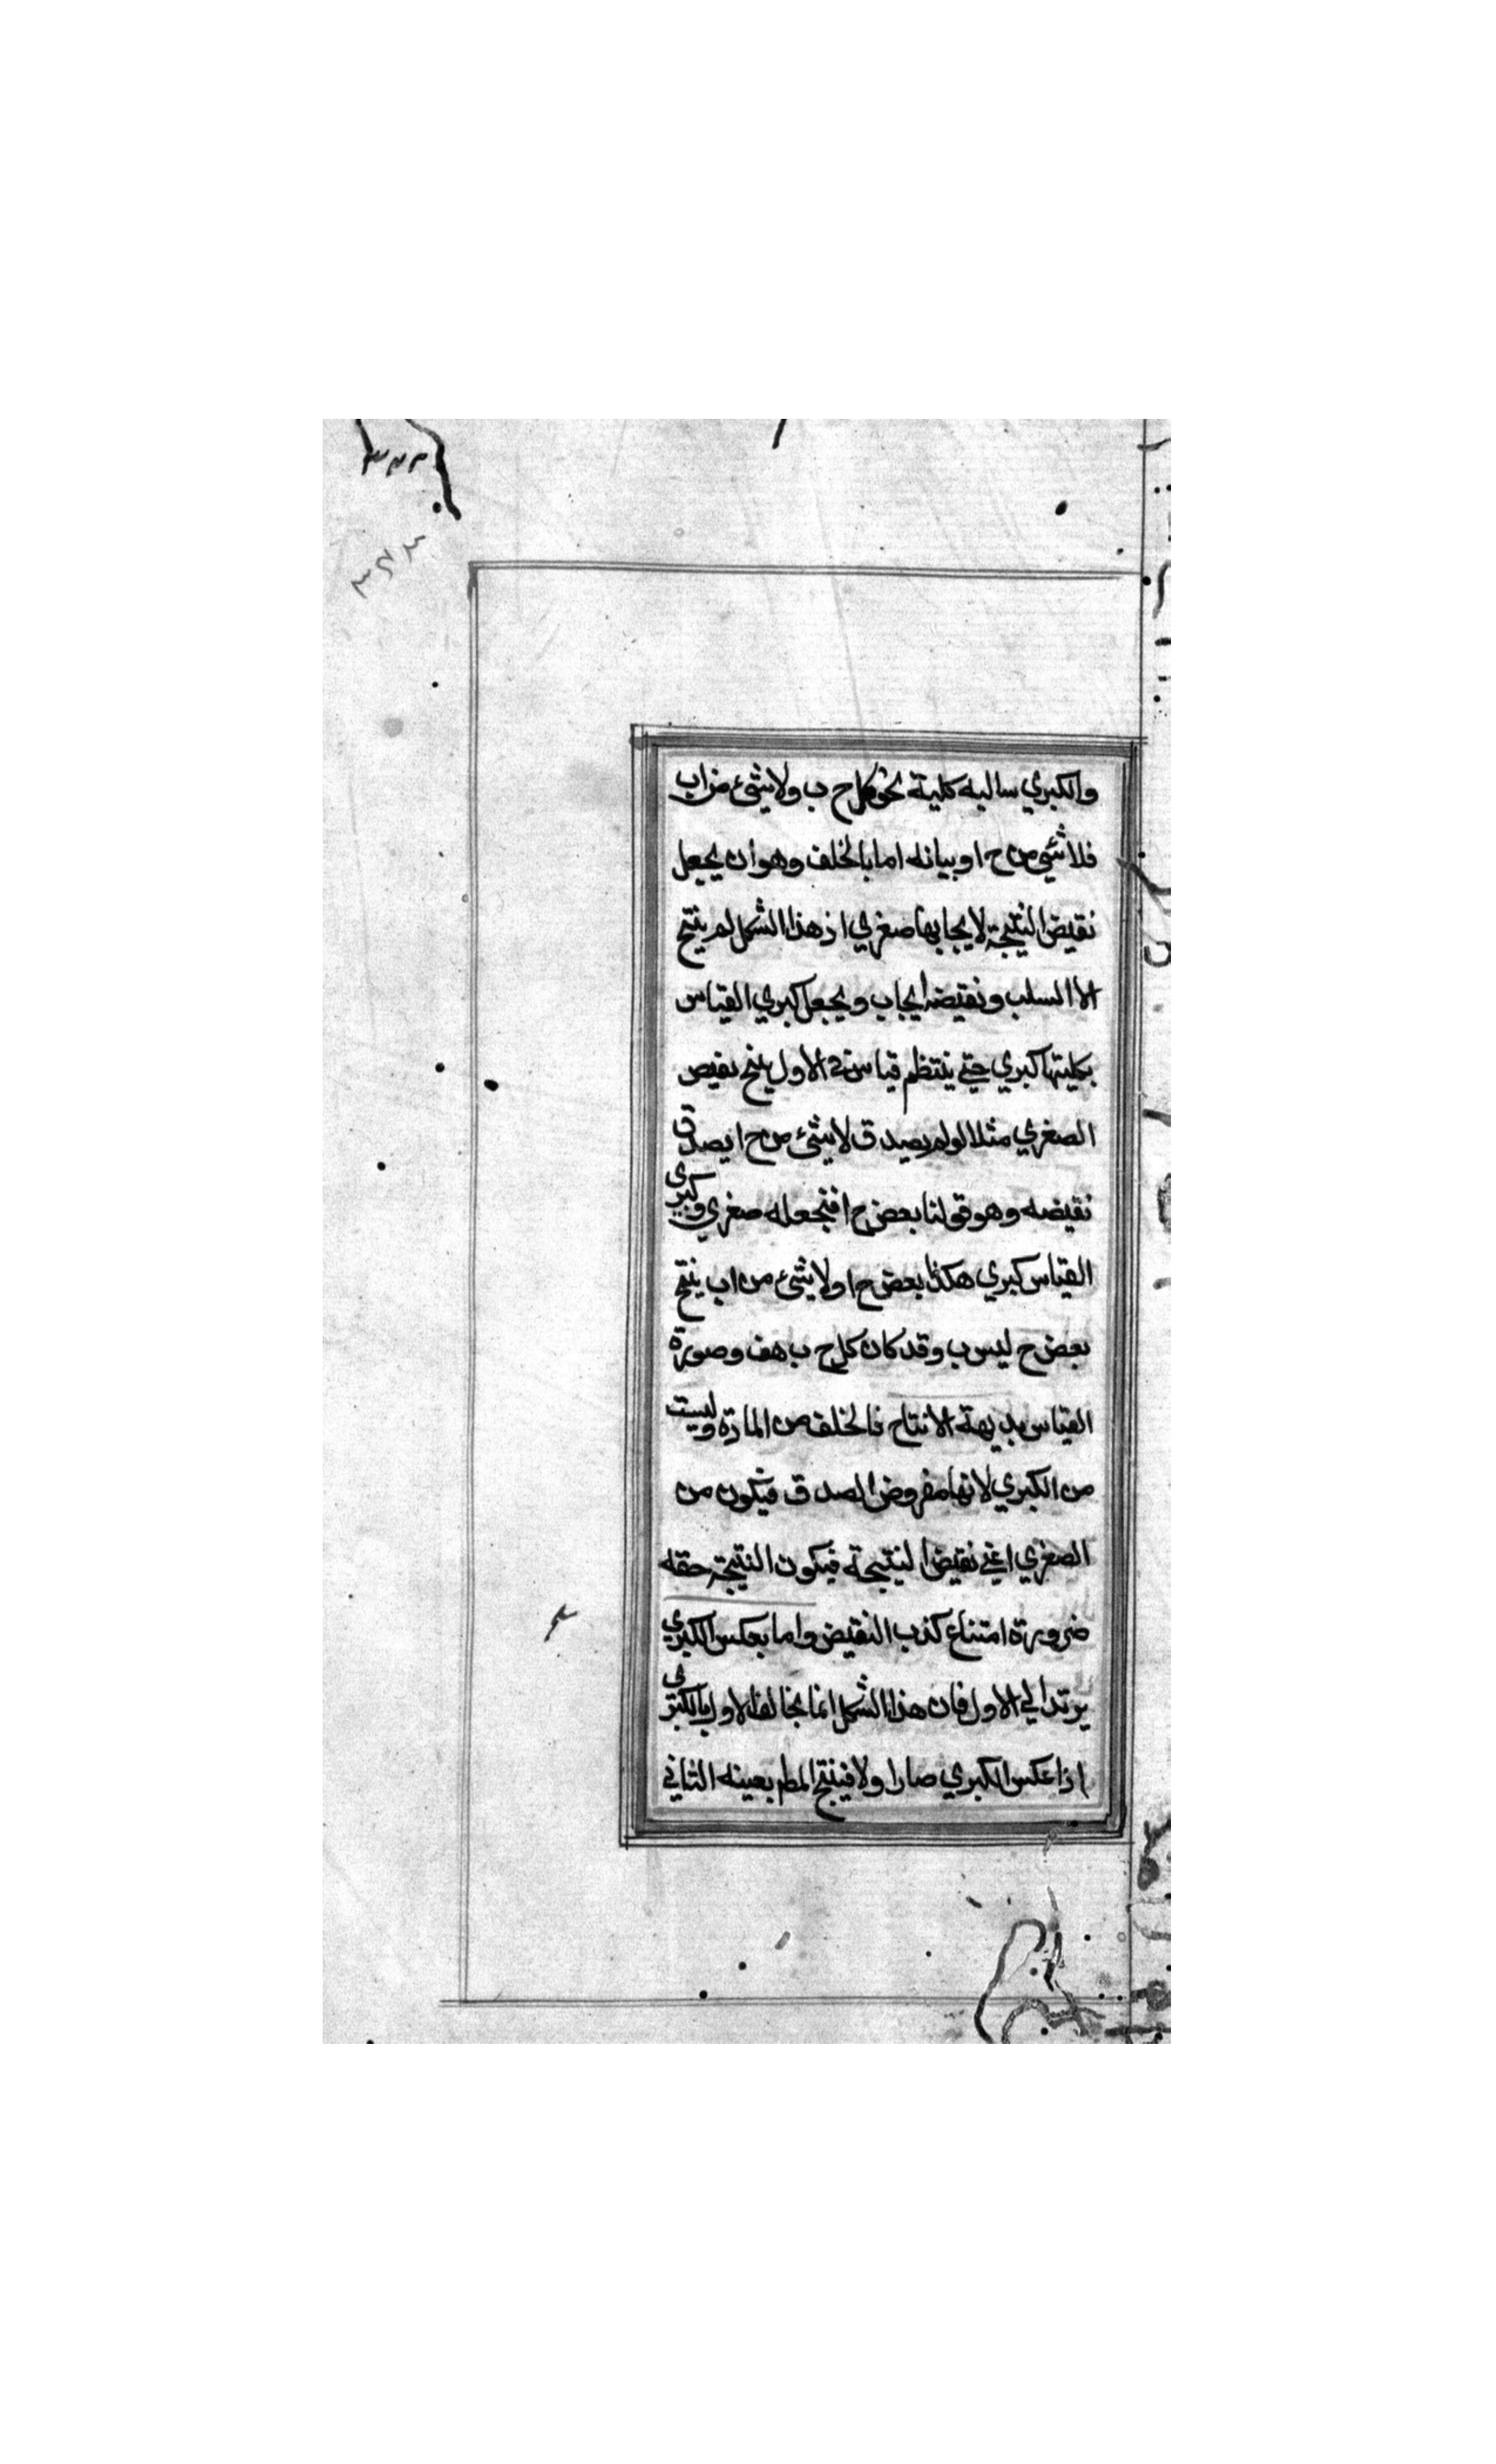 والكبري سالبه كلية نحو كل ح ب ولا شئ من اب
فلا شئ من ح ا وبيانه اما بالخلف وهو ان يجعل
نقيض النتيجة لايجابها صغري اذ هذا الشكل لم ينتج
الا السلب ونقيضه ايجاب ويجعل كبري القياس
بكليتها كبري حتي ينتظم قياس في الاول ينتج نقيض
الصغري مثلا لو لم يصدق لا شئ من ح ا يصدق
نقيضه وهو قولنا بعض ح ا فنجعله صغري وكبري
القياس كبري هكذا بعض ح ا ولا شئ من اب ينتج
بعض ح ليس ب وقد كان كل ح ب هف وصورة
القياس بديهة الانتاج فالخلف من المادة وليست
من الكبري لانها مفروض الصدق فيكون من
الصغري اعني نقيض النتيجة فيكون النتيجة حقه
ضرورة امتناع كذب النقيض واما بعكس الكبري
يرتد الي الاول فان هذا الشكل انما يخالف الاول بالكبري
اذا عكس الكبري صار اولا فينتج المط بعينه الثاني